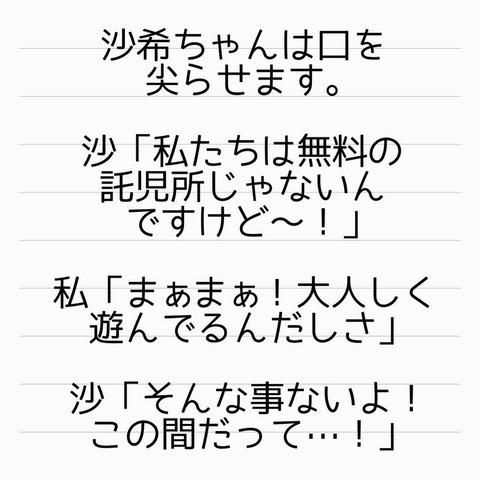 沙希ちゃんは口を
尖らせます。
沙「私たちは無料の
託児所じゃないん
ですけど〜！」
私「まぁまぁ！大人しく
遊んでるんだしさ」
沙「そんな事ないよ！
この間だって…！」